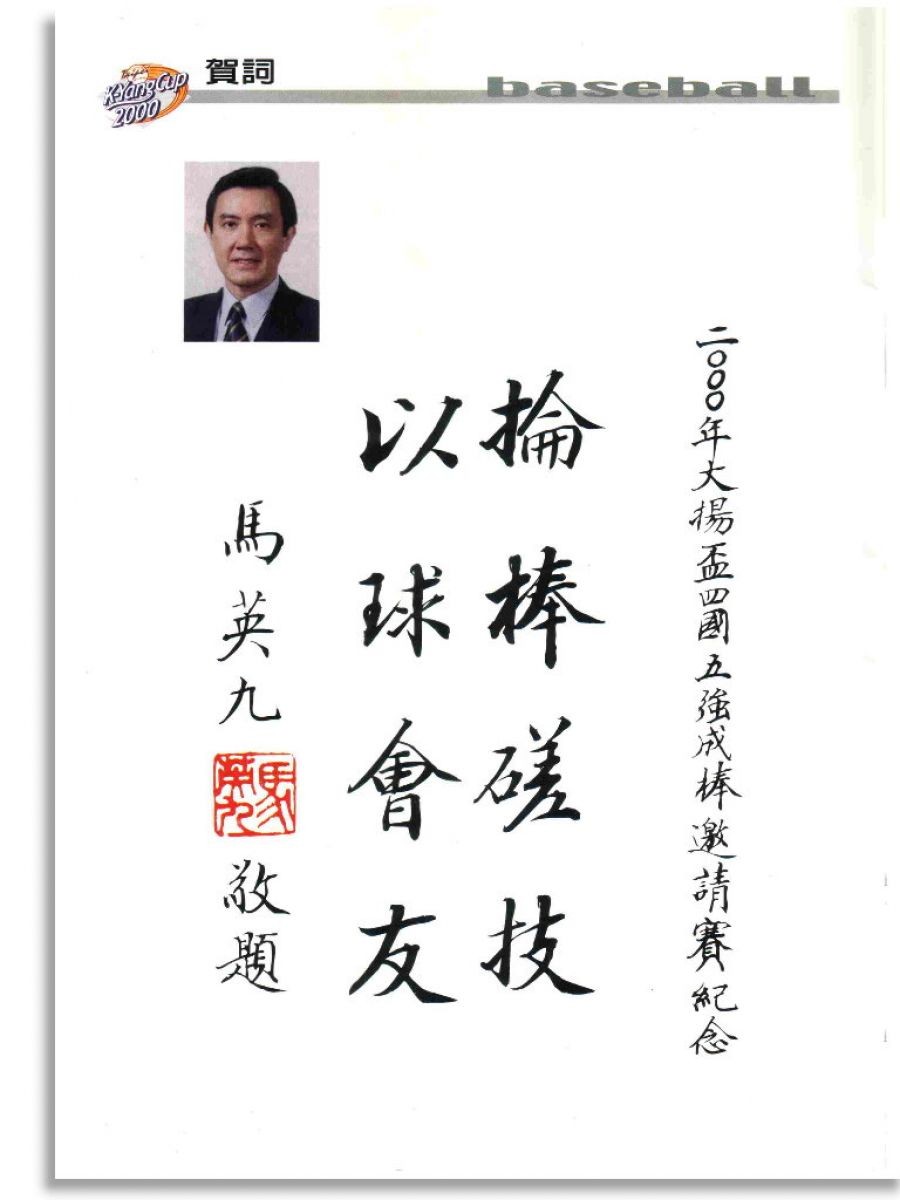 K-Yang Cup
2000
賀詞
baseball
二〇〇〇年大揚盃四國五強成棒邀請賽紀念
掄棒磋技
以球會友
馬英九
馬英九
敬題